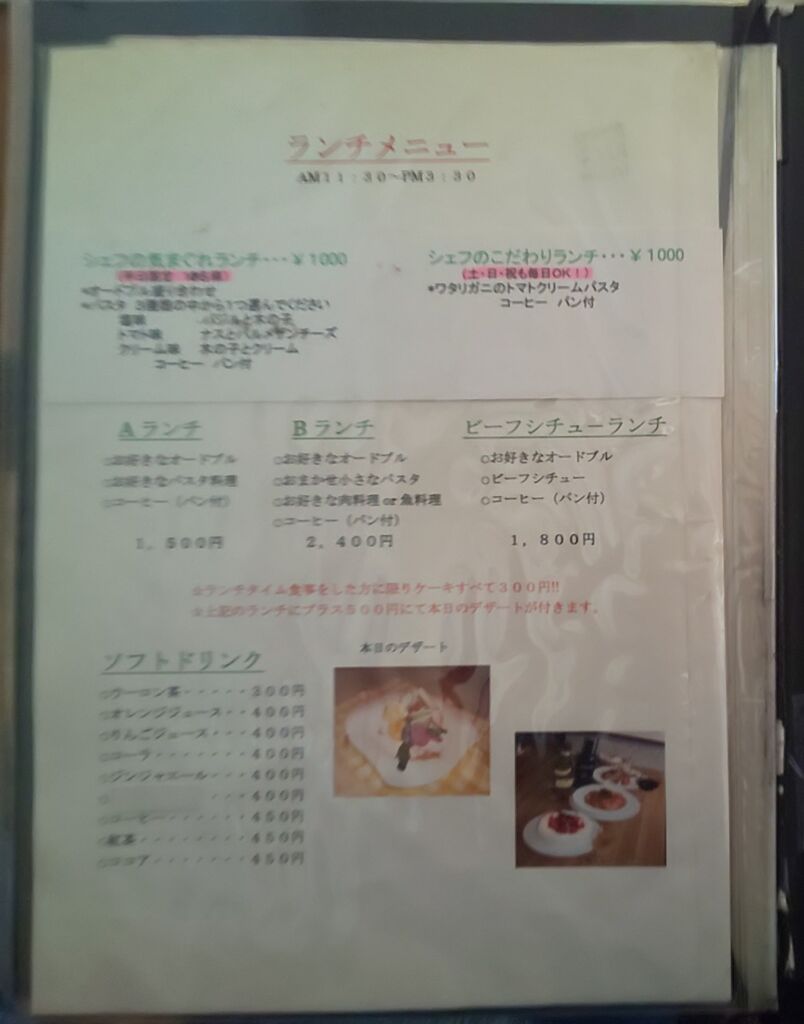 ランチメニュー
AM11：30～PM3：30
シェフの気まぐれランチ・・・￥1000
平日限定
*オードブル盛り合わせ
*パスタ 3種類の中から1つ選んでください
塩味 と木の子
トマト味 ナスとパルメザンチーズ
クリーム味 木の子とクリーム
コーヒー パン付
シェフのこだわりランチ・・・￥1000
(土・日・祝も毎日OK！)
*ワタリガニのトマトクリームパスタ
コーヒー パン付
Aランチ
○お好きなオードブル
○お好きなパスタ料理
○コーヒー（パン付）
1，500円
Bランチ
○お好きなオードブル
○おまかせ小さなパスタ
○お好きな肉料理 or 魚料理
○コーヒー（パン付）
2，400円
ビーフシチューランチ
○お好きなオードブル
○ビーフシチュー
○コーヒー（パン付）
1，800円
☆ランチタイム食事をした方に限りケーキすべて300円!!
☆上記のランチにプラス500円にて本日のデザートが付きます。
ソフトドリンク
○ウーロン茶・・・・・300円
○オレンジジュース・・400円
○りんごジュース・・・400円
○コーラ・・・・・・・400円
○ジンジャエール・・・400円
○ ・・・400円
○コーヒー・・・・・・450円
○紅茶・・・・・・・・450円
○ココア・・・・・・・450円
本日のデザート